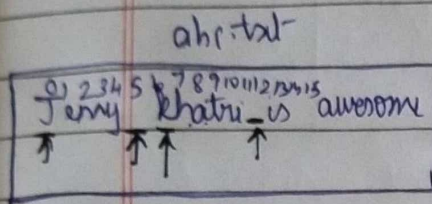 abc.txt
0 1 2 3 4 5 6 7 8 9 10 11 12 13 14 15
Jenny Khatri_is awesome